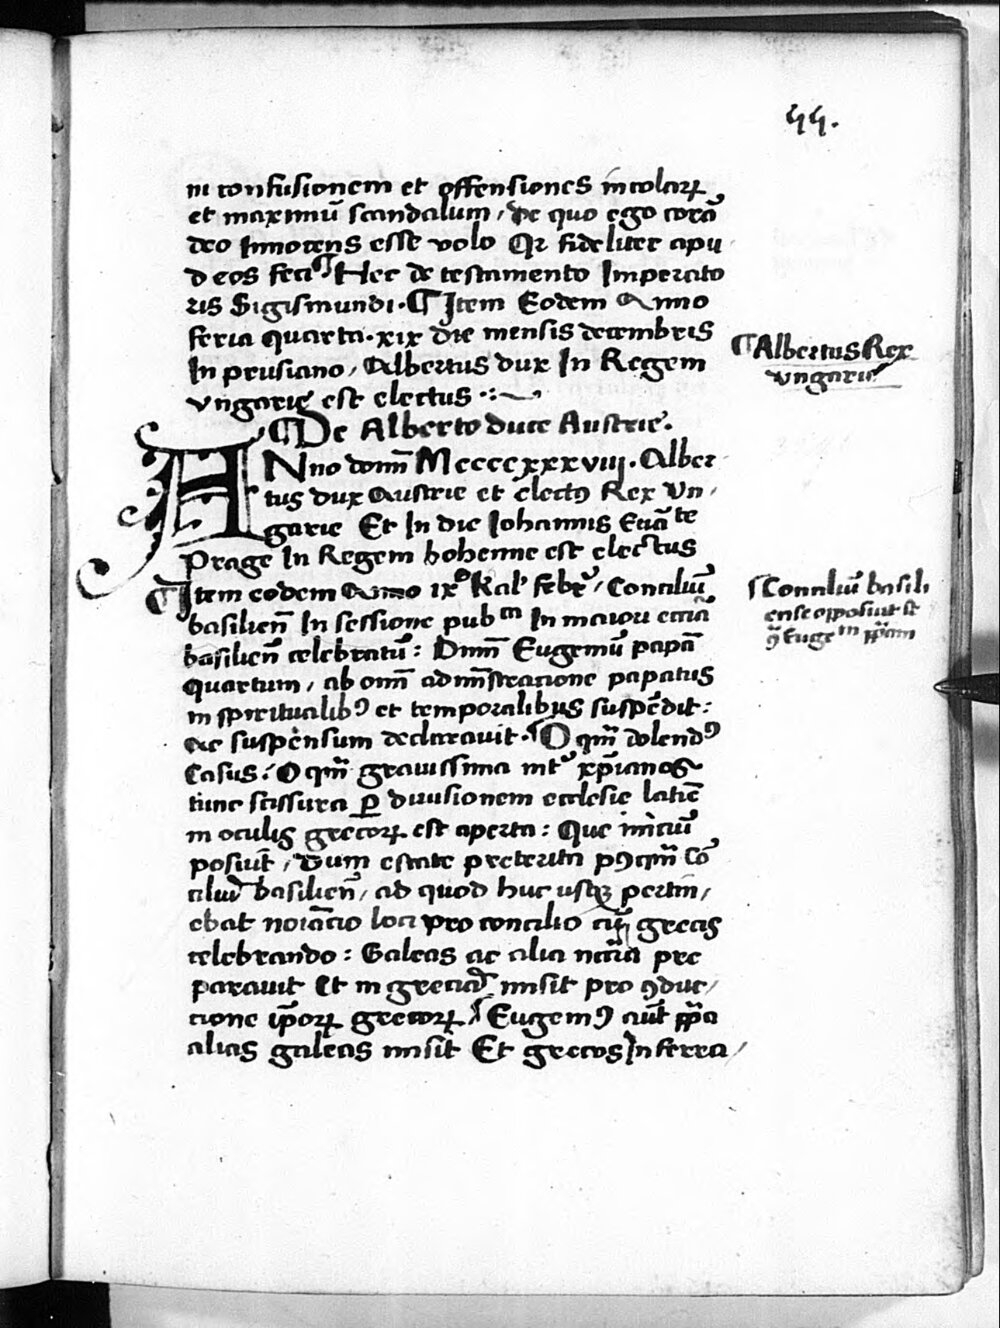 55.
in confusionem et offensiones incolaꝝ
et maximū scandalum, de quo ego corā
deo Innocens esse volo Qꝛ fideliter apu
d eos feci ¶ Hec de testamento Imperato
ris Sigismundi. ¶ Item Eodem Anno
feria quarta. xix die mensis decembris
In prusiano, Albertus dux In Regem
vngarie est electus
¶ De Alberto duce Austrie.
ANno domī Mccccxxxviij. Alber
tus dux Austrie et electꝰ Rex Vn,
garie Et In die Iohannis Euāᵗᵉ
Prage In Regem bohemie est electus
¶ Item eodem Anno ixᵒ kal' febr, Conciliū
basilien̄ In sessione pubᶜᵃ In maiori ecciā
basilien̄ celebratū: Dnm̄ Eugeniū papā
quartum, ab om̄ı admīstracione papatus
in spiritualibꝰ et temporalibus suspēdit:
ac suspensum declarauit. O qm̄ dolendꝰ
Casus: O qm̄ grauissima int' xp̄ianos
tunc scissura ꝑ diuisionem ecclesie latīe
in oculis grecoꝝ est aperta: Que inıciū
posiuit, Dum estate preterita ꝑꝯqm̄ Cō
ciliū basilien̄, ad quod huc usqꝫ pertin,
ebat noıācio loci pro concilio cū grecis
celebrando: Galeas ac alia nc̄ria pre
parauit Et in greciā misit pro ꝯduc,
cione ip̄oꝝ grecoꝝ Eugeniꝰ aūt pp̄a
alias galeas misit Et grecos In ferra,
¶ Albertus Rex
vngarie
Conciliū basili
ense opposuit se
ꝯ Eugeᵐ pp̄am